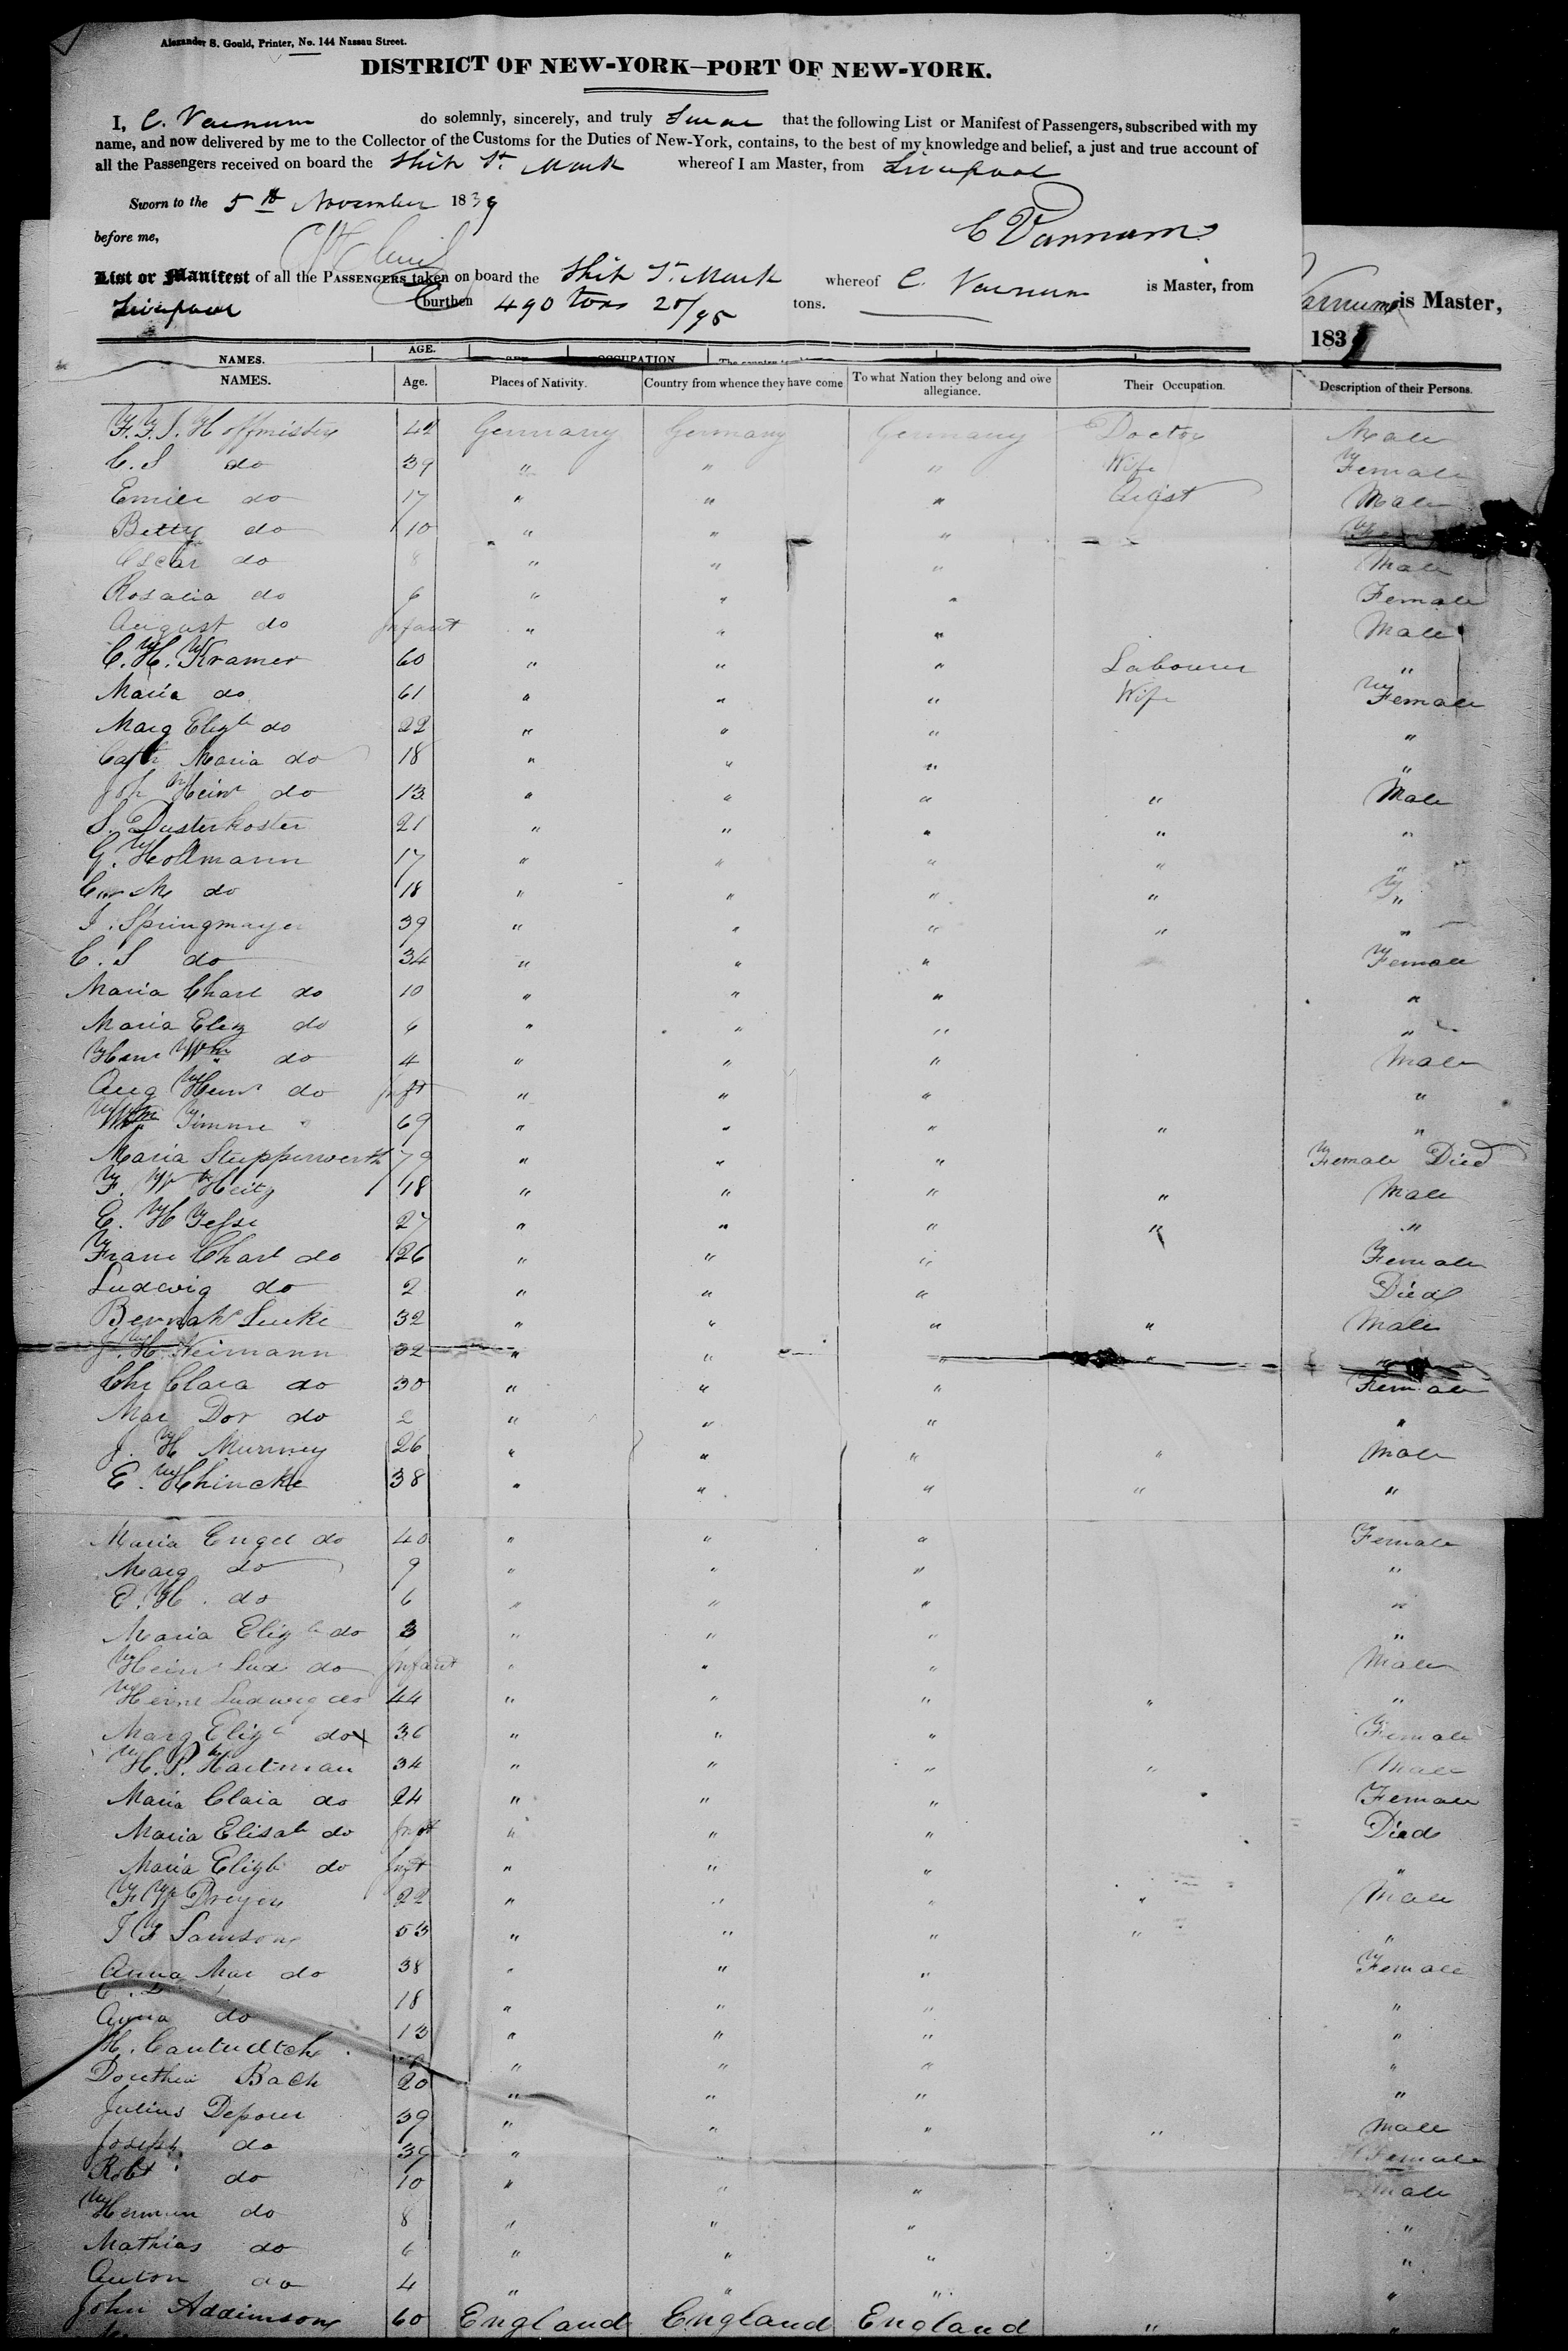 Alexander S. Gould, Printer, No. 144 Nassau Street.
DISTRICT OF NEW-YORK—PORT OF NEW-YORK.
I, C. Varnum do solemnly, sincerely, and truly Swear that the following List or Manifest of Passengers, subscribed with my
name, and now delivered by me to the Collector of the Customs for the Duties of New-York, contains, to the best of my knowledge and belief, a just and true account of
all the Passengers received on board the Ship St. Mark whereof I am Master, from Liverpool
Sworn to the 5th November 1839
before me, C Varnum
List or Manifest of all the PASSENGERS taken on board the Ship St. Mark whereof C. Varnum is Master, from
Liverpool burthen 490 tons 20/95 tons.
Varnum is Master,
1839
NAMES. AGE. OCCUPATION
NAMES. Age. Places of Nativity. Country from whence they have come To what Nation they belong and owe allegiance. Their Occupation. Description of their Persons.
F. F. S. Hoffmister 42 Germany Germany Germany Doctor Male
C. S do 39 " " " Wife Female
Emile do 17 " " " Artist Male
Betty do 10 " " "
Oscar do 8 " " " Male
Rosalia do 6 " " " Female
August do Infant " " " Male
C. H. Kramer 60 " " " Labourer "
Maria do 61 " " " Wife Female
Marg Elizth do 22 " " " "
Cath Maria do 18 " " " "
Joh Heinr do 13 " " " " Male
S. Dusterkoster 21 " " " " "
G. Hollmann 17 " " " " "
do 18 " " " " "
I. Springmayer 39 " " " " "
C. S do 34 " " " Female
Maria Charl do 10 " " " "
Maria Eliz do 6 " " " "
Heinr Wm do 4 " " " Male
Aug Heinr do Inft " " " "
Wm Timme 69 " " " " "
Maria Stupperwerth 79 " " " Female Died
F. W Heitz 18 " " " " Male
E. H Jesse 27 " " " " "
Franc Charl do 26 " " " Female
Ludewig do 2 " " " Died
Bernah Lucke 32 " " " " Male
J. H. Neimann 32 " " " " "
Chr Clara do 30 " " " Female
Mar Dor do 2 " " " "
J. H Munney 26 " " " " Male
E. Hhincke 38 " " " " "
Maria Engel do 40 " " " Female
Marg do 9 " " " "
E. H. do 6 " " " "
Maria Elizth do 3 " " " "
Heinr Lud do Infant " " " Male
Heinr Ludwig do 44 " " " " "
Marg Elizth do 36 " " " Female
H. P. Hartman 34 " " " " Male
Maria Clara do 24 " " " Female
Maria Elisab do Inft " " " Died
Maria Elizth do Inft " " " "
F W Dreyer 22 " " " " Male
J F Samson 53 " " " " "
Anna Mar do 38 " " " Female
18 " " " "
Anna do 13 " " " "
H. " " " "
Dorthea Bach 20 " " " "
Julius Depour 39 " " " " Male
Joseph do 39 " Female
Robt do 10 " " " Male
Herman do 8 " " " "
Mathias do 6 " " " "
Anton do 4 " " " "
John Addimson 60 England England England " "